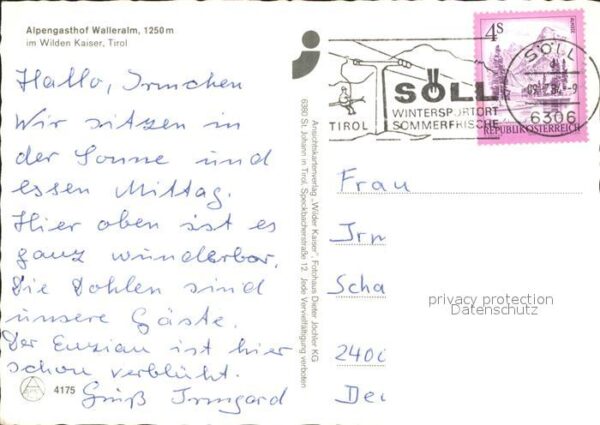 Alpengasthof Walleralm, 1250 m
im Wilden Kaiser, Tirol
Hallo, Irmchen
Wir sitzen in
der Sonne und
essen Mittag.
Hier oben ist es
ganz wunderbar,
Die Dohlen sind
unsere Gäste.
Der Enzian ist hier
schon verblüht.
Gruß Irmgard
4175
Ansichtskartenverlag „Wilder Kaiser“, Fotohaus Dieter Jöchler KG
6380 St. Johann in Tirol, Speckbacherstraße 12 Jede Vervielfältigung verboten
TIROL
SÖLL
WINTERSPORTORT
SOMMERFRISCHE
4S
REPUBLIK ÖSTERREICH
SÖLL
6306
Frau
Irm
Scha
240
Dei
privacy protection
Datenschutz